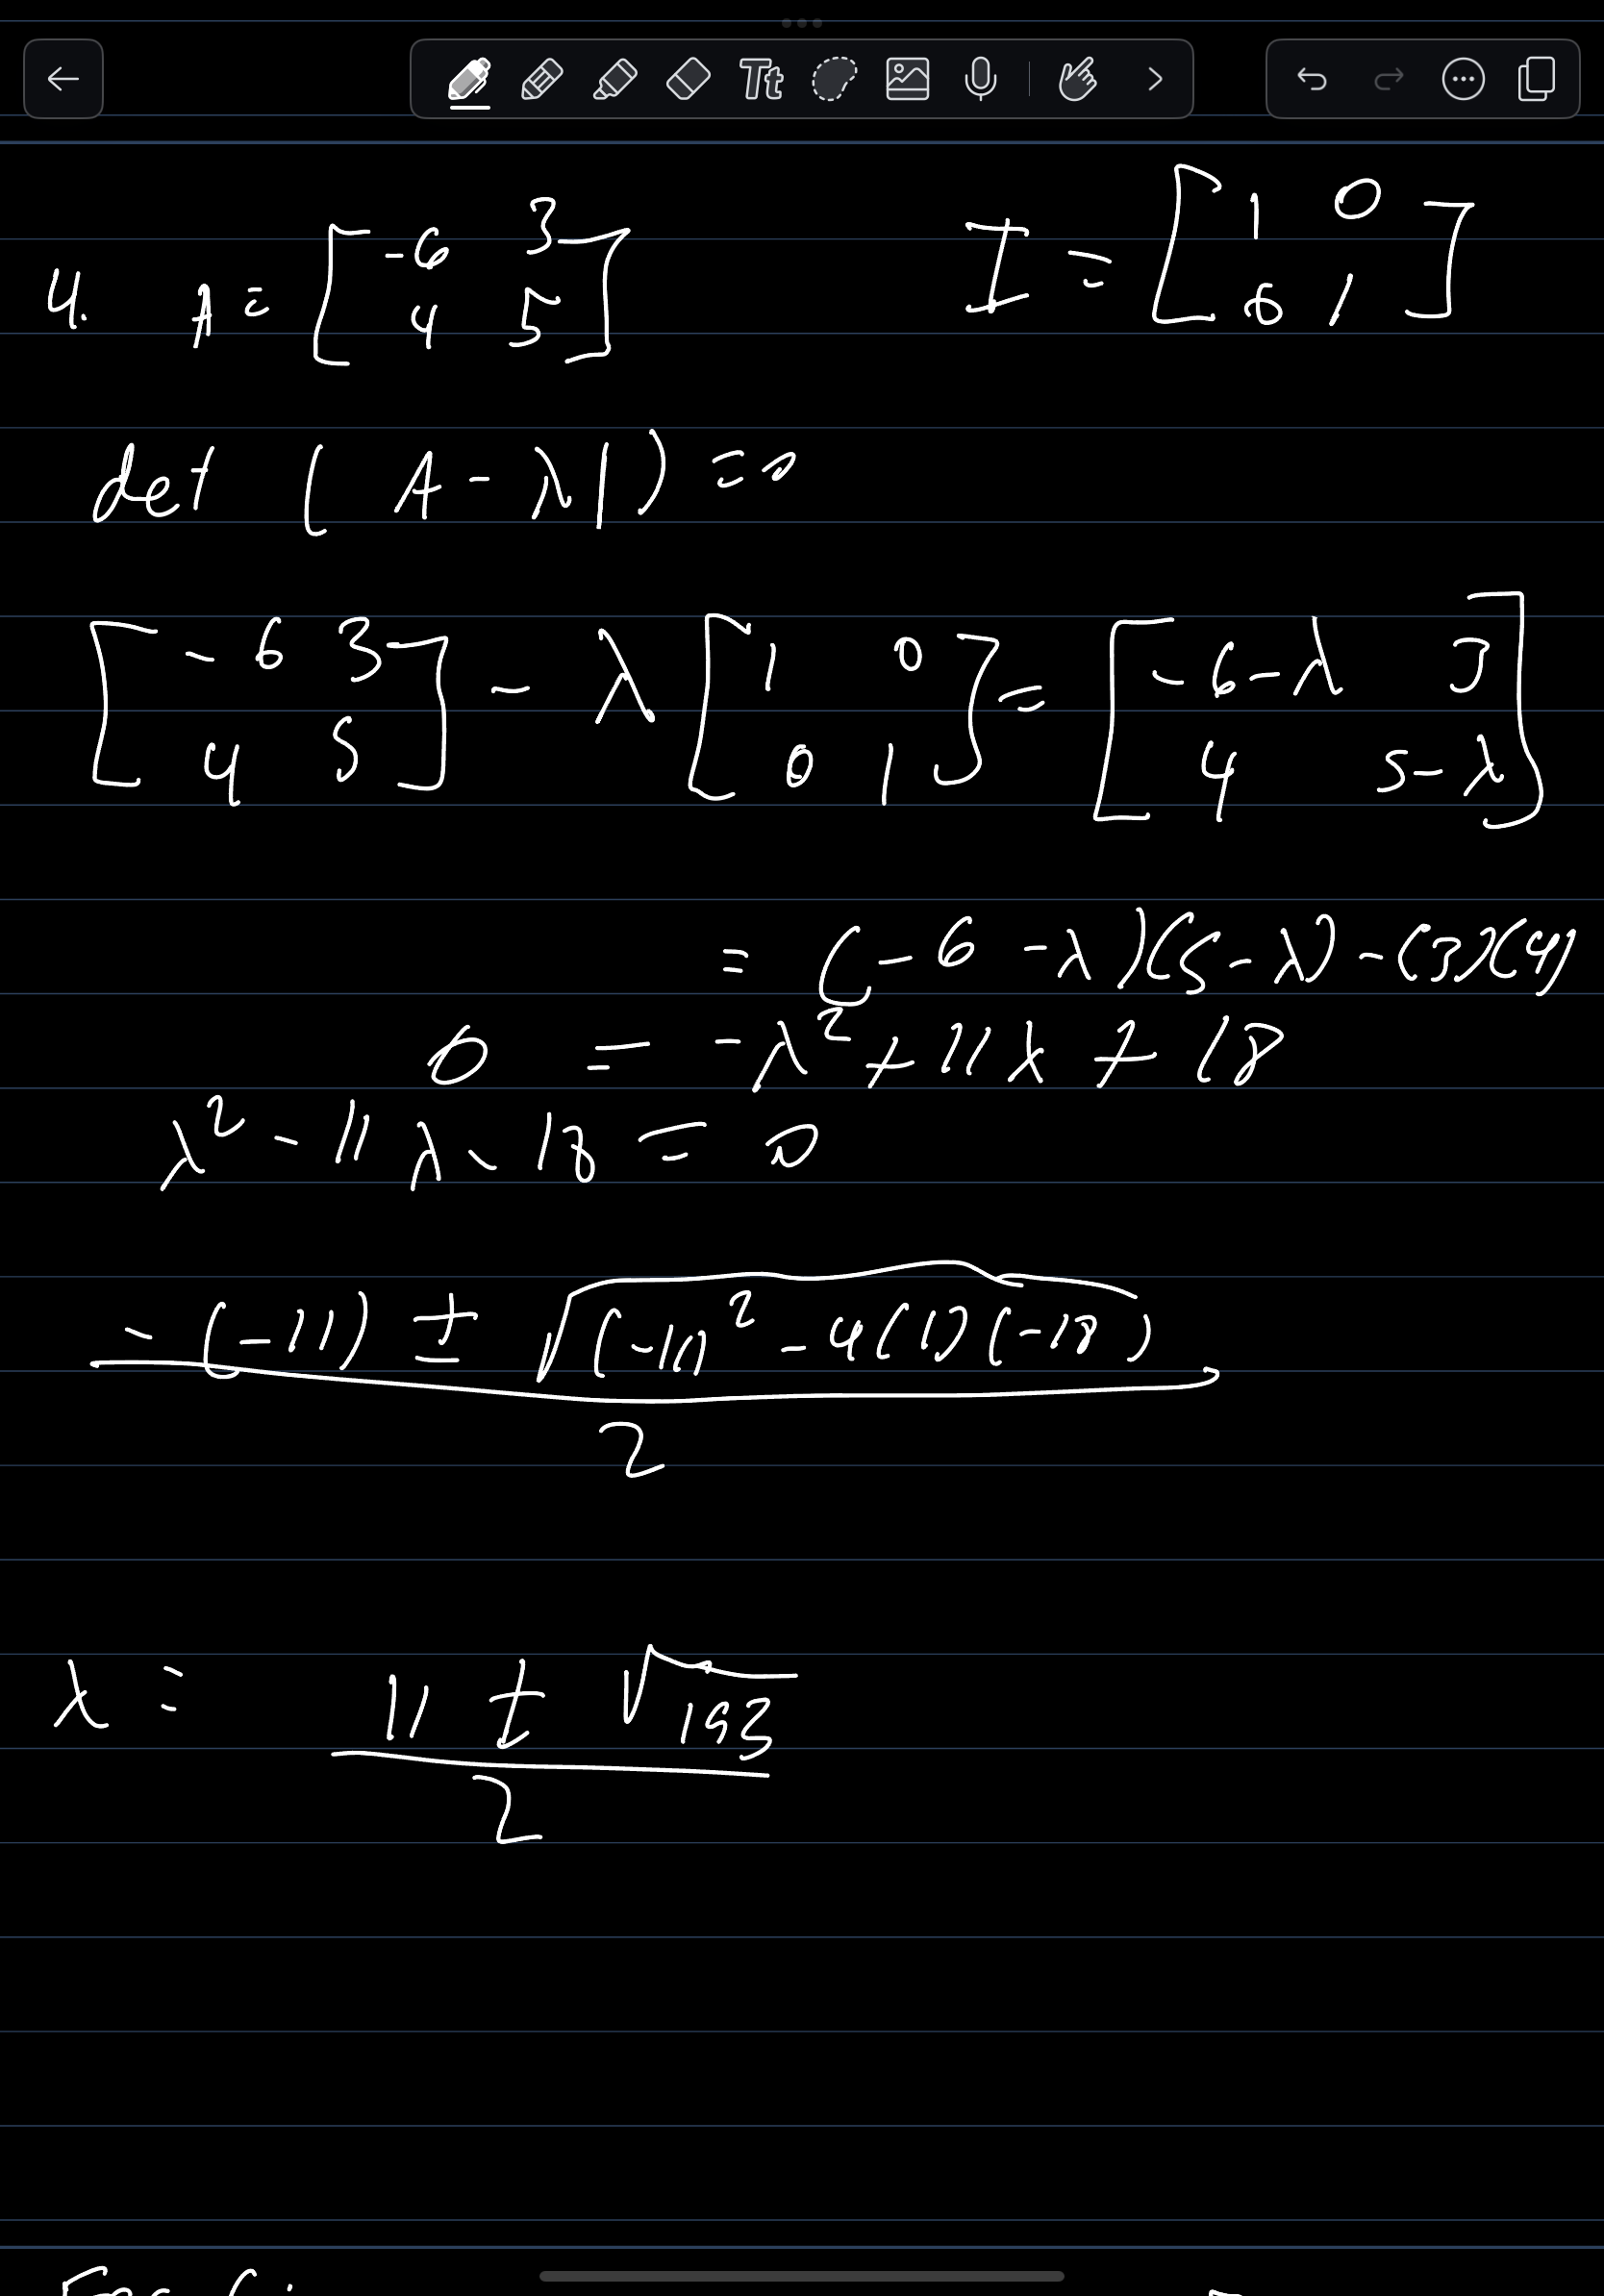 Tt
4. A = [ -6 3 ; 4 5 ] I = [ 1 0 ; 0 1 ]
det ( A - λ I ) = 0
[ -6 3 ; 4 5 ] - λ [ 1 0 ; 0 1 ] = [ -6-λ 3 ; 4 5-λ ]
= (-6 -λ)(5-λ) - (3)(4)
0 = -λ² + 11λ + 18
λ² - 11λ - 18 = 0
-(-11) ± √(-11)² - 4(1)(-18)
2
λ = 11 ± √193
2